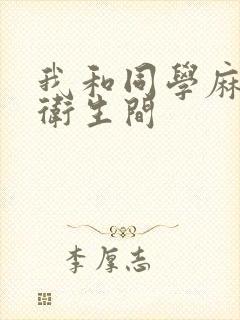 我和同學麻
衛生間
李厚志